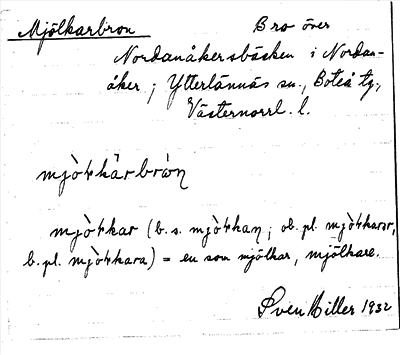 Mjölkarbron Bro över
Nordanåkersbäcken i Nordan-
åker, Ytterlännäs sn., Boteå tg.,
Västernorrl. l.
mjòɫkärbrón
mjòɫkar (b. s. mjòɫkaṇ; ob. pl. mjòɫkarar,
b. pl. mjòɫkara) = en som mjölkar, mjölkare.
Sven Hiller 1932